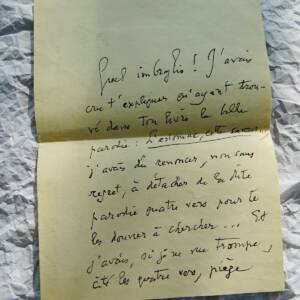 Quel imbroglio ! J'avais
cru t'expliquer qu'ayant trou-
vé dans ton livre la belle
parodie :
j'avais dû renoncer, non sans
regret, à détacher de la dite
parodie quatre vers pour te
les donner à chercher ... Et
j'avais, si je ne me trompe,
été les quatre vers, piège